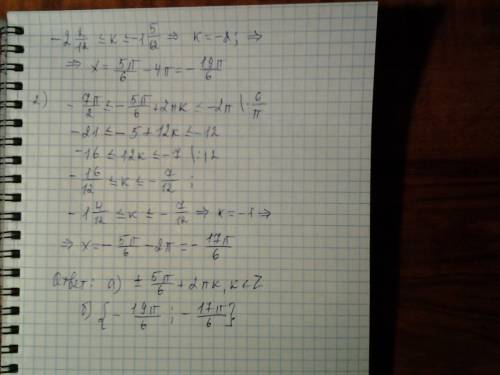 -2 2/12 ≤ k ≤ -1 5/12 ⇒ k = -2; ⇒
⇒ x = 5π/6 - 4π = - 19π/6
2) - 7π/2 ≤ - 5π/6 + 2πk ≤ -2π | · 6/π
-21 ≤ -5 + 12k ≤ -12
-16 ≤ 12k ≤ -7 | : 12
- 16/12 ≤ k ≤ - 7/12 ;
-1 4/12 ≤ k ≤ - 7/12 ⇒ k = -1 ⇒
⇒ x = - 5π/6 - 2π = - 17π/6
Ответ: а) ± 5π/6 + 2πk, k∈Z
б) { - 19π/6 ; - 17π/6 }